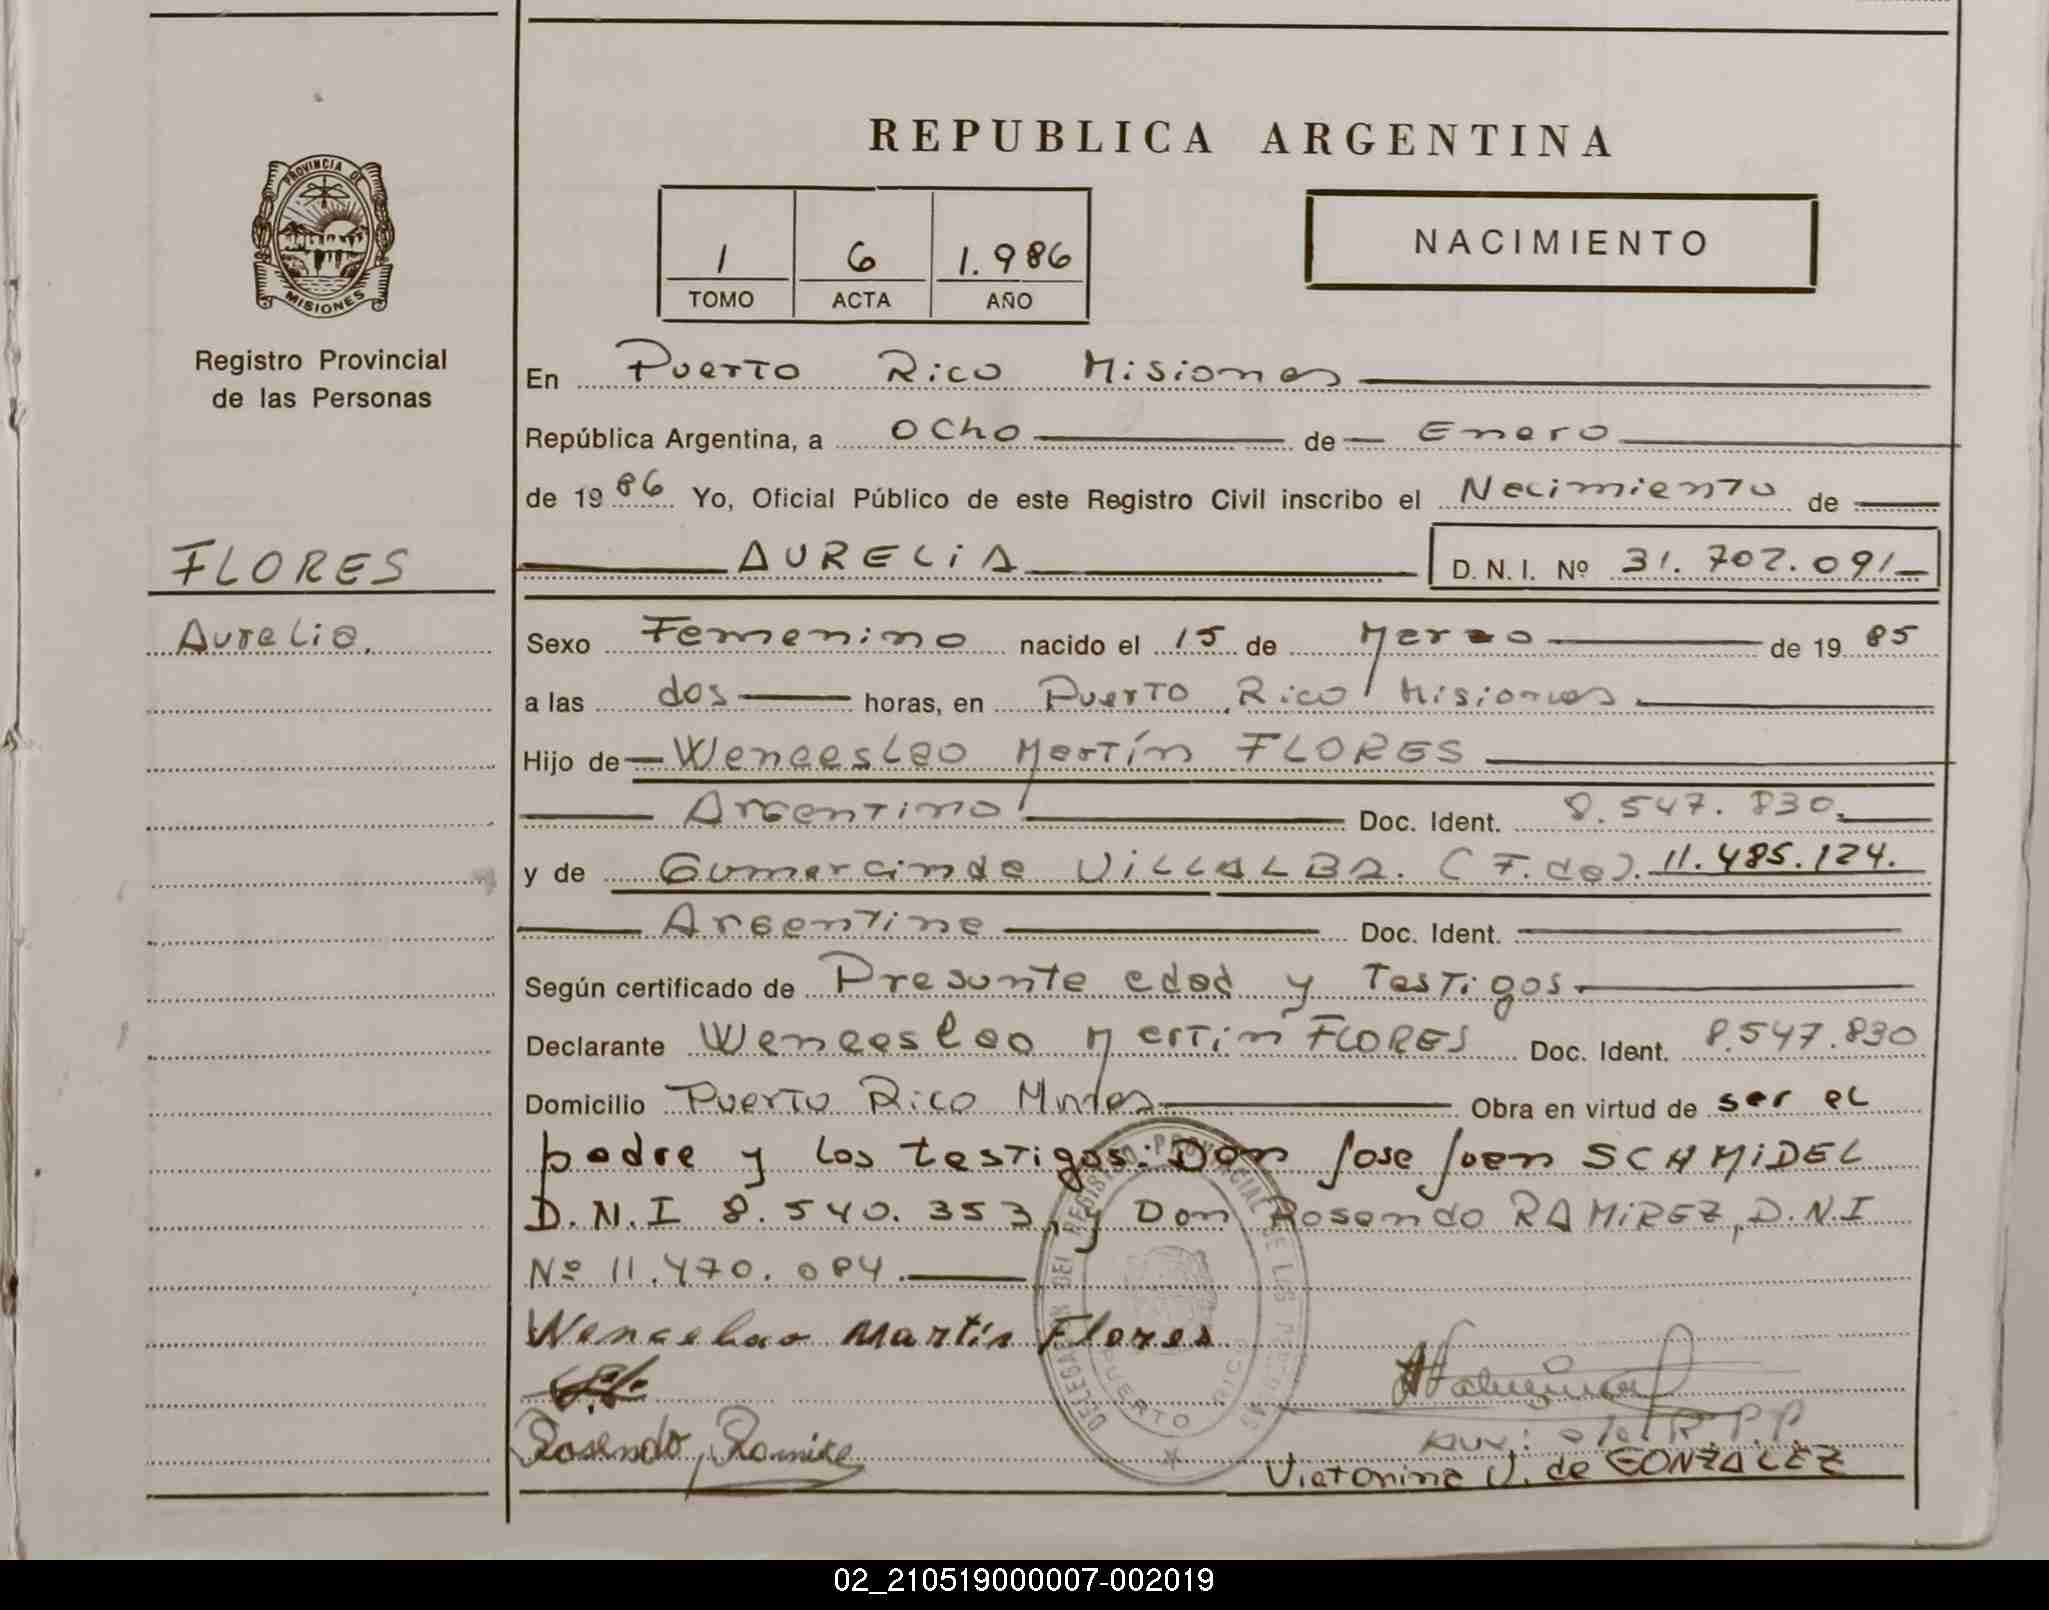 REPUBLICA ARGENTINA
PROVINCIA DE
MISIONES
Registro Provincial
de las Personas
1 6 1.986
TOMO ACTA AÑO
NACIMIENTO
En Puerto Rico Misiones
República Argentina, a ocho de Enero
de 1986 Yo, Oficial Público de este Registro Civil inscribo el Nacimiento de
FLORES
Aurelia.
AURELIA D.N.I. Nº 31.702.091
Sexo Femenino nacido el 15 de Marzo de 1985
a las dos horas, en Puerto Rico Misiones
Hijo de Wenceslao Martín FLORES
Argentino Doc. Ident. 8.547.830.
y de Gumercinda VILLALBA. (F.da). 11.485.124.
Argentina Doc. Ident.
Según certificado de Presunta edad y Testigos.
Declarante Wenceslao Martín FLORES Doc. Ident. 8.547.830
Domicilio Puerto Rico Mnes Obra en virtud de ser el
padre y los testigos: Don Jose Juan SCHMIDEL
D.N.I 8.540.353, y Don Rosendo RAMIREZ, D.N.I
Nº 11.470.084.
Wenceslao Martín Flores
Rosendo Ramire
DELEGACION DEL REGISTRO PROVINCIAL DE LAS PERSONAS
PUERTO RICO
R.P.P.
Victorina V. de GONZALEZ
02_210519000007-002019